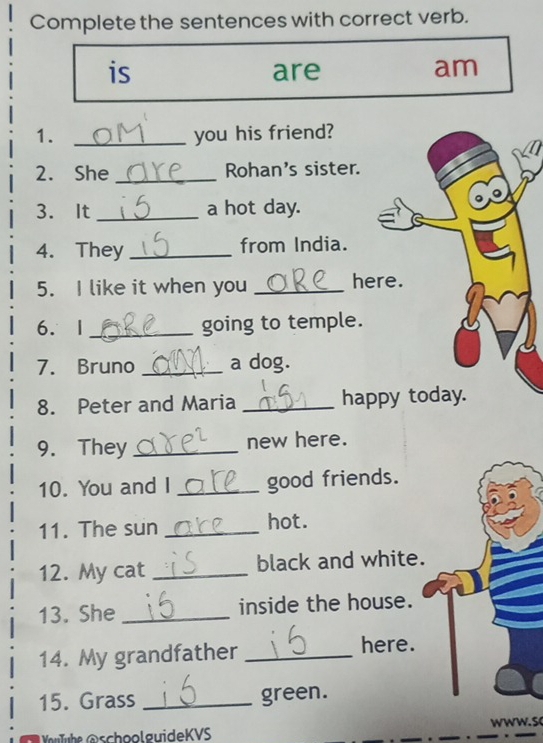 Complete the sentences with correct verb.
is are am
1. am you his friend?
2. She are Rohan's sister.
3. It is a hot day.
4. They is from India.
5. I like it when you are here.
6. I are going to temple.
7. Bruno am a dog.
8. Peter and Maria is happy today.
9. They are new here.
10. You and I are good friends.
11. The sun are hot.
12. My cat is black and white.
13. She is inside the house.
14. My grandfather is here.
15. Grass is green.
YouTube @schoolguideKVS
www.sc